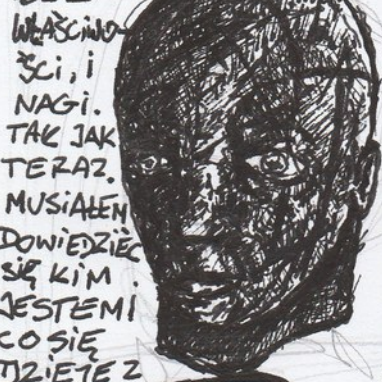 WŁAŚCIWO-
ŚCI, I
NAGI.
TAK JAK
TERAZ.
MUSIAŁEM
DOWIEDZIEĆ
SIĘ KIM
JESTEM I
CO SIĘ
DZIEJE Z